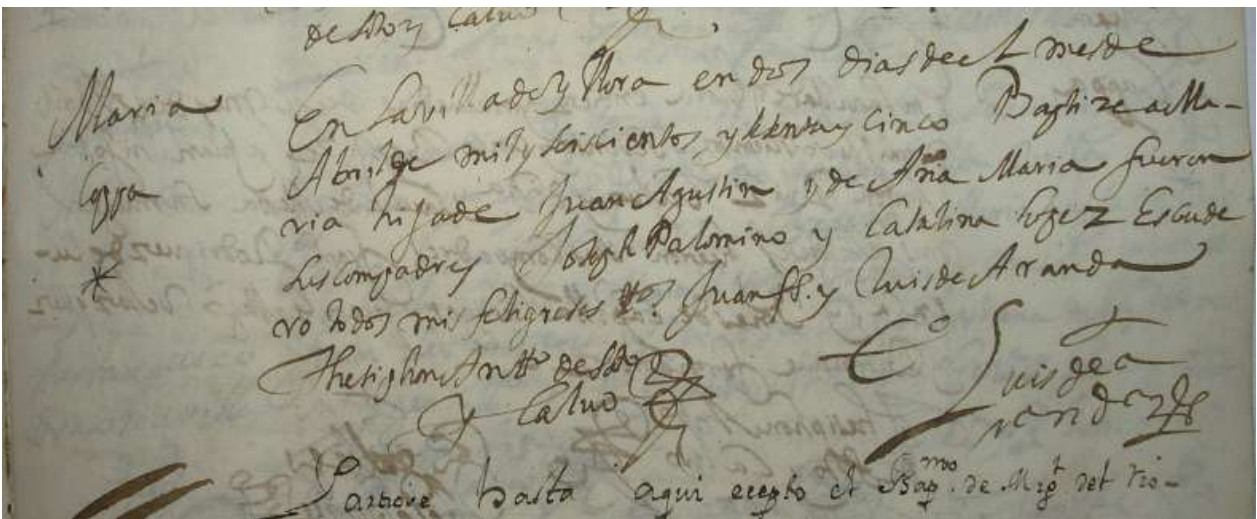 de Soto y Calvo
Maria
En la villa de Yllora en dos dias de el mes de
Abril de mil y seiscientos y setenta y cinco Baptize a Ma-
ria hija de Juan Agustin y de Ana Maria fueron
sus compadres Joseph Palomino y Catalina lopez Escude
ro todos mis feligreses tts Juan fs. y Luis de Aranda
Thesiphon Antto de Soto
y Calvo
Luis de a
randa
hasta aqui ecepto el Bapmo. de Migl del rio-